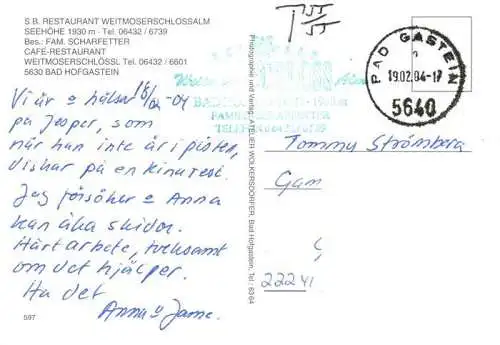 S B. RESTAURANT WEITMOSERSCHLOSSALM
SEEHÖHE 1930 m - Tel. 06432 / 6739
Bes.: FAM. SCHARFETTER
CAFÉ-RESTAURANT
WEITMOSERSCHLÖSSL Tel. 06432 / 6601
5630 BAD HOFGASTEIN
18/2-84
Vi är o hälsar
på Jesper, som
när han inte är i pisten,
diskar på en
Jag försöker o Anna
kan åka skidor.
Hårt arbete, tveksamt
om det hjälper.
Ha det
Anna o Janne.
597
Photographie und Verlag: ATELIER WOLKERSDORFER, Bad Hofgastein, Tel.: 6364
BAD GASTEIN
19.02.84-17
5640
Tommy Strömberg
Gam
222 41